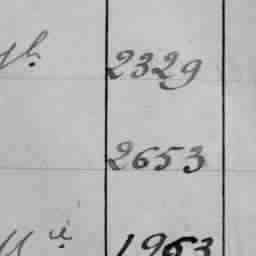 2329
2653
1963